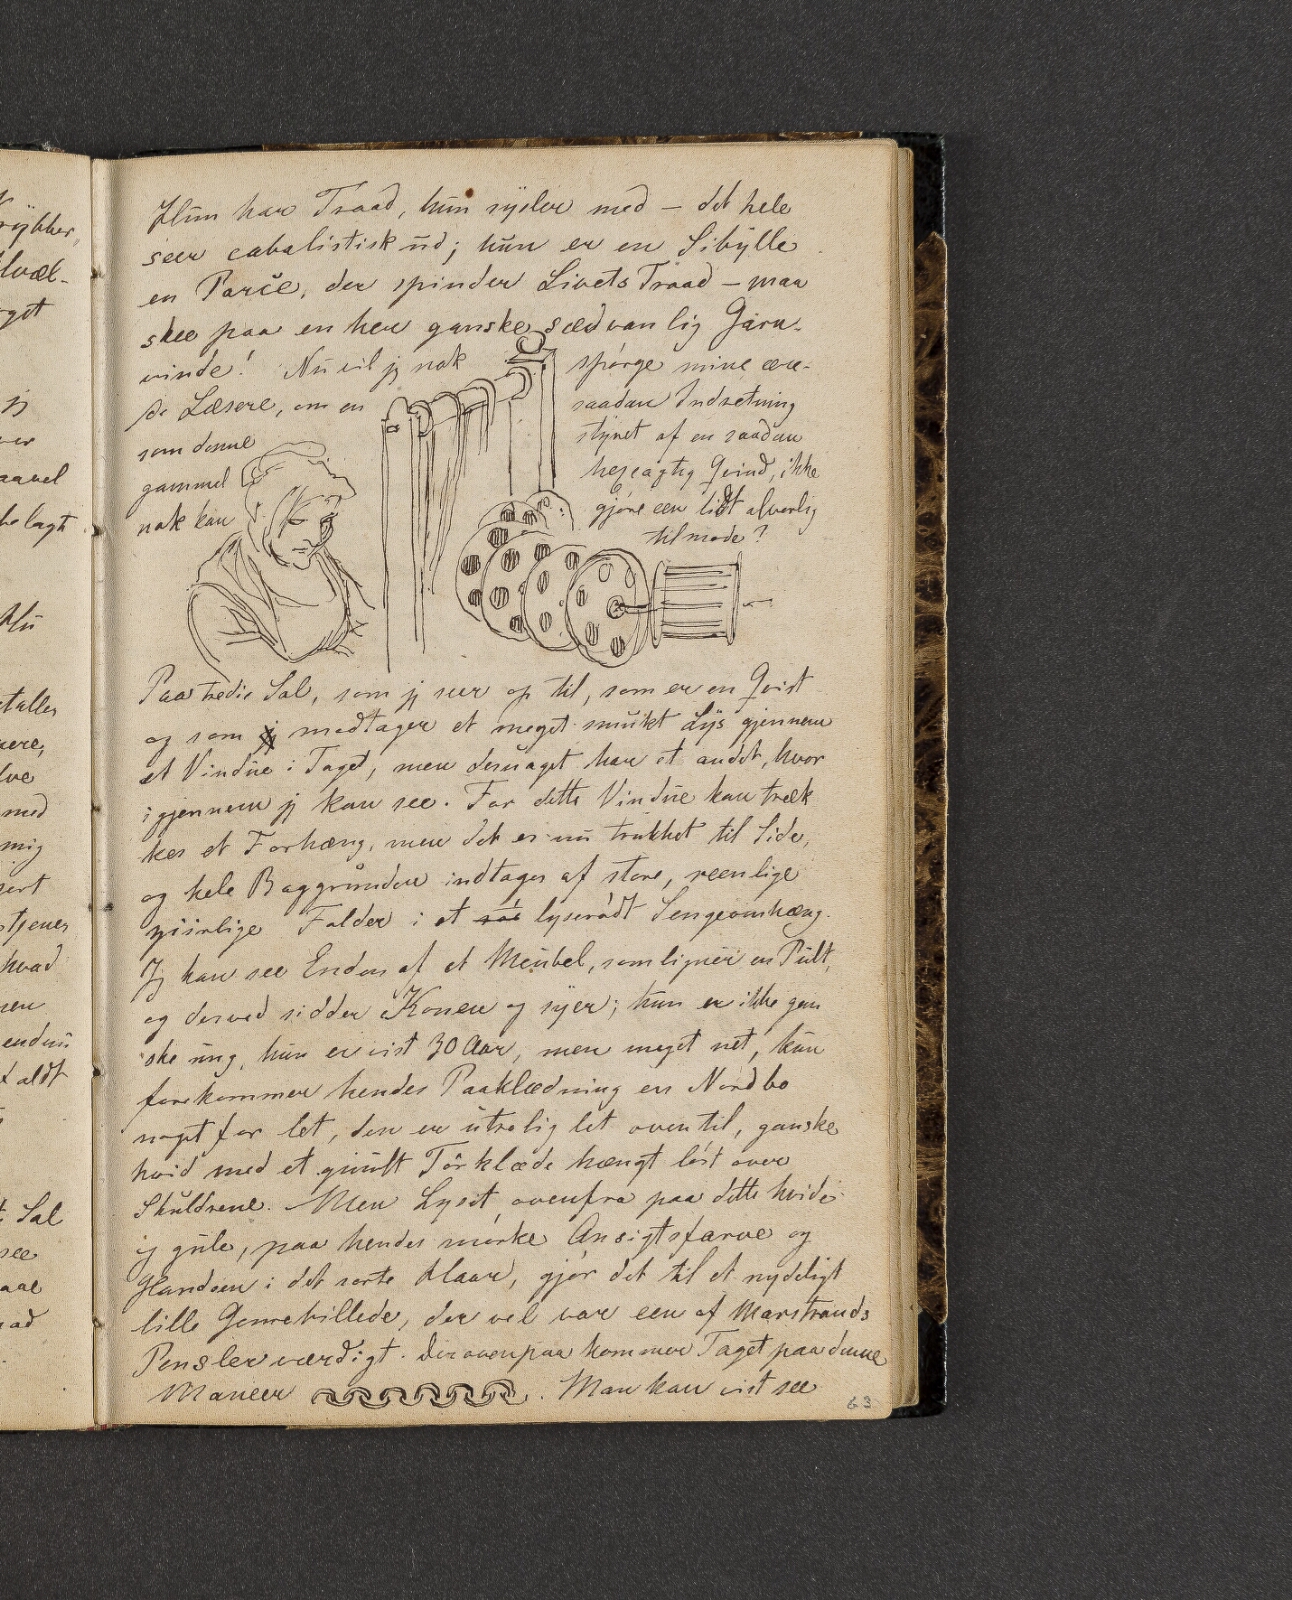 Hun har Traad, hun sysler med – det hele
seer cabalistisk ud; hun er en Sibylle
en Parce, der spinder Livets Traad – maa
skee paa en her ganske sædvanlig Garn-
vinde! Nu vil jeg nok spørge mine ære-
de Læsere, om en saadan Indretning
som denne styret af en saadan
gammel hexeagtig Qvind, ikke
nok kan gjøre een lidt alvorlig
tilmode?
Paa tredie Sal, som jeg seer op til, som er en Qvist
og som modtager et meget smukt Lys gjennem
et Vindue i Taget, men desuaget har et andet, hvor
igjennem jeg kan see. For dette Vindue kan træk
kes et Forhæng, men det er nu trukket til Side,
og hele Baggrunden indtages af store, reenlige
ziirlige Folder i et lyserødt Sengeomhæng.
Jeg kan see Enden af et Meubel, som ligner en Pult,
og derved sidder Konen og syer; hun er ikke gan
ske ung, hun er vist 30 Aar, men meget net, kun
forekommer hendes Paaklædning en Nordbo
noget for let, den er utrolig let oventil, ganske
hvid med et guult Tørklæde hængt løst over
Skuldrene. Men Lyset ovenfra paa dette hvide
og gule, paa hendes mørke Ansigtsfarve og
Glandsen i det sorte Haar, gjør det til et nydeligt
lille Genrebillede, der vel var een af Marstrands
Pensler værdigt. Derovenpaa kommer Taget paa denne
Maneer . Man kan vist see
63